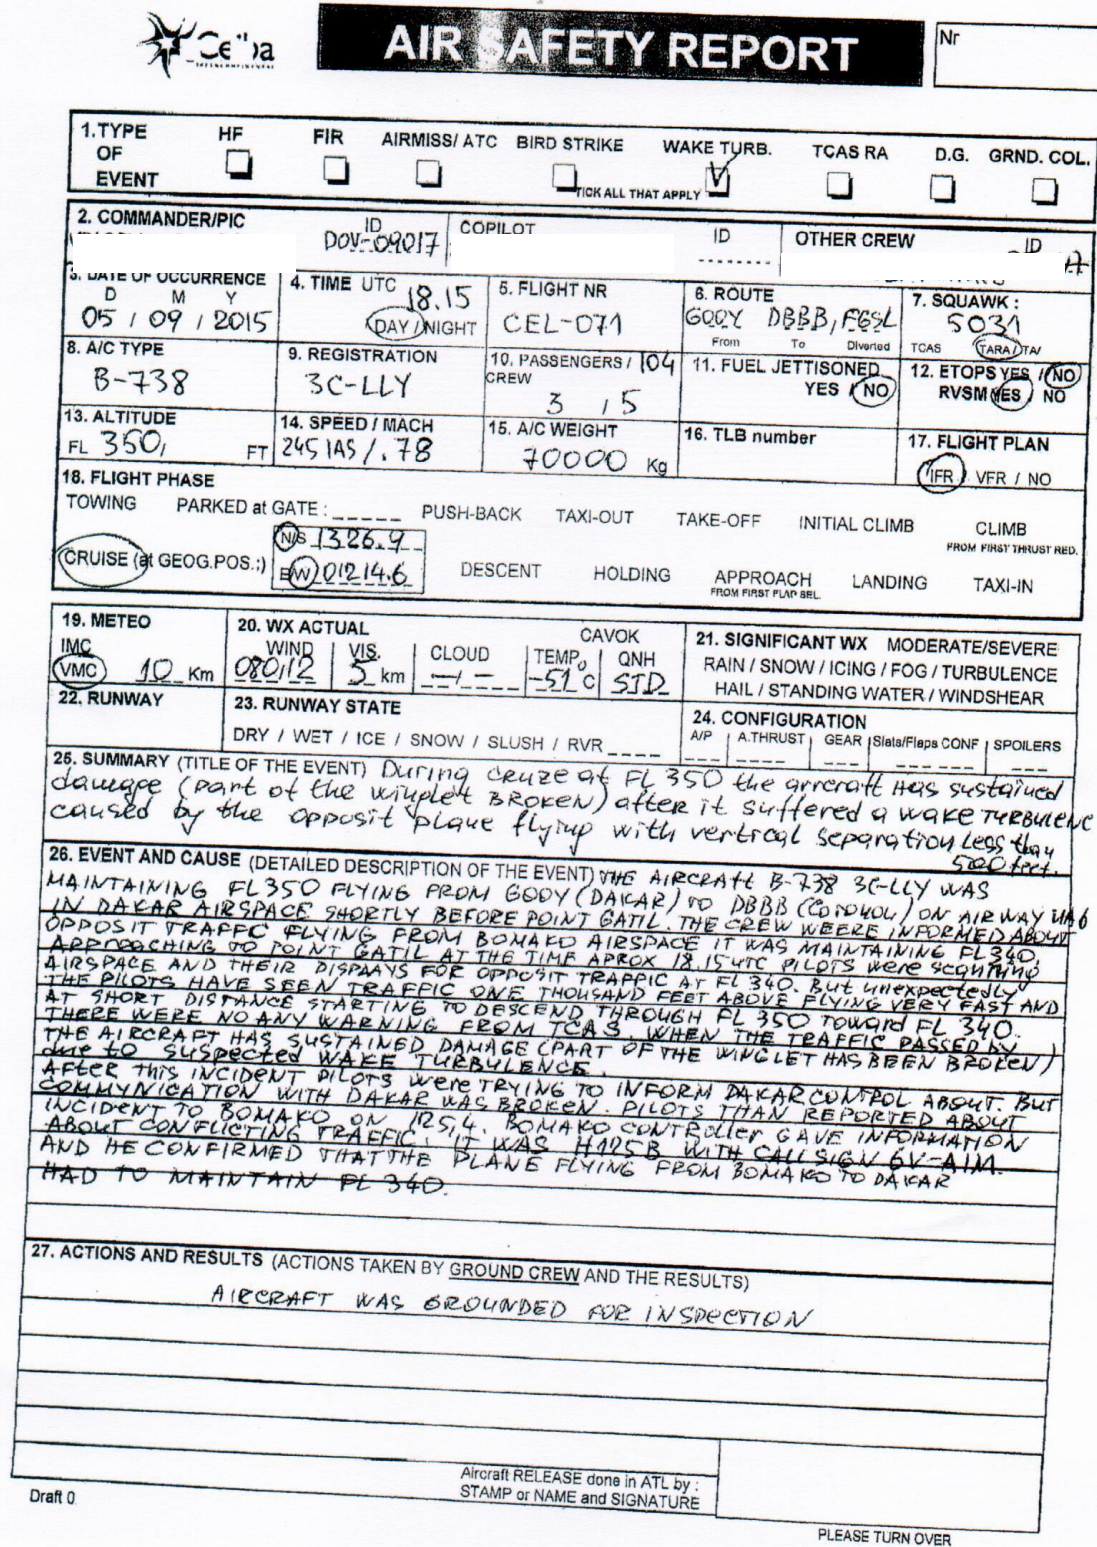 Ceiba
AIR SAFETY REPORT
Nr
1.TYPE OF EVENT
HF FIR AIRMISS/ ATC BIRD STRIKE WAKE TURB. TCAS RA D.G. GRND. COL.
TICK ALL THAT APPLY
2. COMMANDER/PIC ID COPILOT ID OTHER CREW ID
DOV-09017 --------
3. DATE OF OCCURRENCE 4. TIME UTC 18.15 5. FLIGHT NR 6. ROUTE 7. SQUAWK :
D M Y
05 / 09 / 2015 DAY / NIGHT CEL-071 GOOY DBBB, FGSL 5031
From To Diverted TCAS TARA / TA/
8. A/C TYPE 9. REGISTRATION 10. PASSENGERS / 104 11. FUEL JETTISONED 12. ETOPS YES / NO
CREW YES / NO RVSM YES / NO
B-738 3C-LLY 3 / 5
13. ALTITUDE 14. SPEED / MACH 15. A/C WEIGHT 16. TLB number 17. FLIGHT PLAN
FL 350, FT 245 IAS / .78 70000 Kg IFR / VFR / NO
18. FLIGHT PHASE
TOWING PARKED at GATE : _____ PUSH-BACK TAXI-OUT TAKE-OFF INITIAL CLIMB CLIMB
FROM FIRST THRUST RED.
CRUISE (at GEOG.POS.:) N/S 1326.9
E/W 01214.6 DESCENT HOLDING APPROACH LANDING TAXI-IN
FROM FIRST FLAP SEL.
19. METEO 20. WX ACTUAL CAVOK 21. SIGNIFICANT WX MODERATE/SEVERE
IMC WIND VIS. CLOUD TEMP. QNH RAIN / SNOW / ICING / FOG / TURBULENCE
VMC 10 Km 080/12 5 km --/-- -51°C STD HAIL / STANDING WATER / WINDSHEAR
22. RUNWAY 23. RUNWAY STATE 24. CONFIGURATION
DRY / WET / ICE / SNOW / SLUSH / RVR ____ A/P A.THRUST GEAR Slats/Flaps CONF SPOILERS
25. SUMMARY (TITLE OF THE EVENT) During cruze at FL 350 the arrcraft Has sustained
damage (part of the winglet BROKEN) after it suffered a wake TURBULENC
caused by the opposit plane flying with vertical separation less than
500 feet.
26. EVENT AND CAUSE (DETAILED DESCRIPTION OF THE EVENT) THE AIRCRAft B-738 3C-LLY WAS
MAINTAINING FL350 FLYING FROM GOOY (DAKAR) TO DBBB (COTONOU) ON AIRWAY UA6
IN DAKAR AIRSPACE SHORTLY BEFORE POINT GATIL. THE CREW WEERE INFORMED ABOUT
OPPOSIT TRAFFC FLYING FROM BOMAKO AIRSPACE IT WAS MAINTAINING FL340.
APPROACHING TO POINT GATIL AT THE TIME APROX 18.15 UTC PILOTS were scanning
AIRSPACE AND THEIR DISPAAYS FOR OPPOSIT TRAFFIC AT FL 340. But unexpectedly
THE PILOTS HAVE SEEN TRAFFIC ONE THOUSAND FEET ABOVE FLYING VERY FAST AND
AT SHORT DISTANCE STARTING TO DESCEND THROUGH FL 350 TOWARD FL 340.
THERE WERE NO ANY WARNING FROM TCAS. WHEN THE TRAFFIC PASSED BY
THE AIRCRAFT HAS SUSTAINED DAMAGE (PART OF THE WINGLET HAS BEEN BROKEN)
due to suspected WAKE TURBULENCE.
AFTER THIS INCIDENT PILOTS were TRYING TO INFORM DAKAR CONTROL ABOUT. BUT
COMMYNICATION WITH DAKAR WAS BROKEN. PILOTS THAN REPORTED ABOUT
INCIDENT TO BOMAKO ON 125,4. BOMAKO CONTROLLer GAVE INFORMATION
ABOUT CONFLICTING TRAFFIC. IT WAS H125B WITH CALL SIGN 6V-AIM.
AND HE CONFIRMED THAT THE PLANE FLYING FROM BOMAKO TO DAKAR
HAD TO MAINTAIN FL 340.
27. ACTIONS AND RESULTS (ACTIONS TAKEN BY GROUND CREW AND THE RESULTS)
AIRCRAFT WAS GROUNDED FOR INSPECTION
Aircraft RELEASE done in ATL by :
STAMP or NAME and SIGNATURE
Draft 0
PLEASE TURN OVER